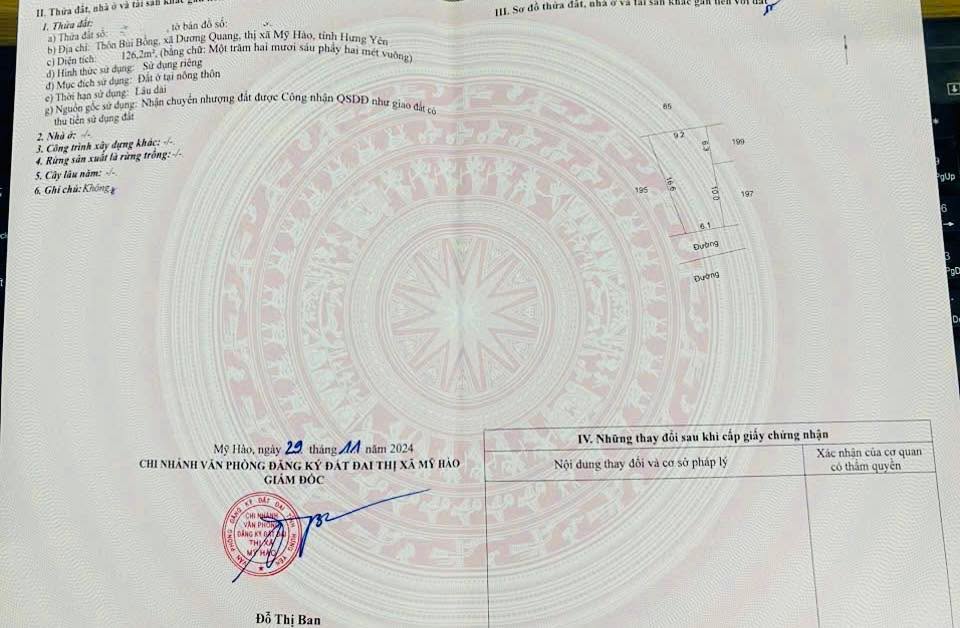 II. Thửa đất, nhà ở và tài sản khác gắn
1. Thửa đất:
a) Thửa đất số: , tờ bản đồ số:
b) Địa chỉ: Thôn Bùi Bồng, xã Dương Quang, thị xã Mỹ Hào, tỉnh Hưng Yên
c) Diện tích: 126,2m², (bằng chữ: Một trăm hai mươi sáu phẩy hai mét vuông)
d) Hình thức sử dụng: Sử dụng riêng
đ) Mục đích sử dụng: Đất ở tại nông thôn
e) Thời hạn sử dụng: Lâu dài
g) Nguồn gốc sử dụng: Nhận chuyển nhượng đất được Công nhận QSDĐ như giao đất có
thu tiền sử dụng đất
2. Nhà ở: -/-
3. Công trình xây dựng khác: -/-
4. Rừng sản xuất là rừng trồng: -/-
5. Cây lâu năm: -/-
6. Ghi chú: Không
III. Sơ đồ thửa đất, nhà ở và tài sản khác gắn liền với đất
65
9.2
6.3
199
195
16.6
10.0
197
6.1
Đường
Đường
Mỹ Hào, ngày 29 tháng 11 năm 2024
CHI NHÁNH VĂN PHÒNG ĐĂNG KÝ ĐẤT ĐAI THỊ XÃ MỸ HÀO
GIÁM ĐỐC
VĂN PHÒNG ĐĂNG KÝ ĐẤT ĐAI TỈNH HƯNG YÊN
CHI NHÁNH
VĂN PHÒNG
ĐĂNG KÝ ĐẤT ĐAI
THỊ XÃ
MỸ HÀO
Đỗ Thị Ban
IV. Những thay đổi sau khi cấp giấy chứng nhận
Nội dung thay đổi và cơ sở pháp lý
Xác nhận của cơ quan
có thẩm quyền
PgUp
6
3